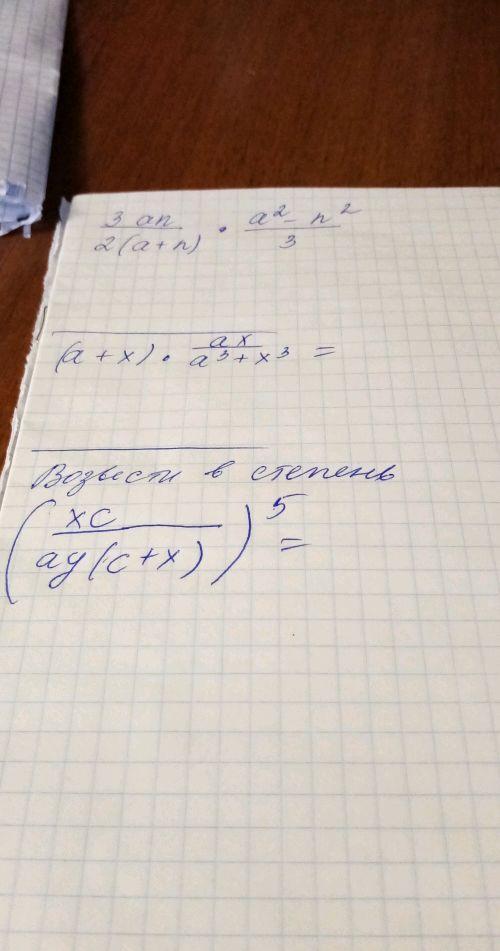 3 an / 2(a+n) · a² - n² / 3
(a+x) · ax / a³+x³ =
Возвести в степень
(xc / ay(c+x))⁵ =